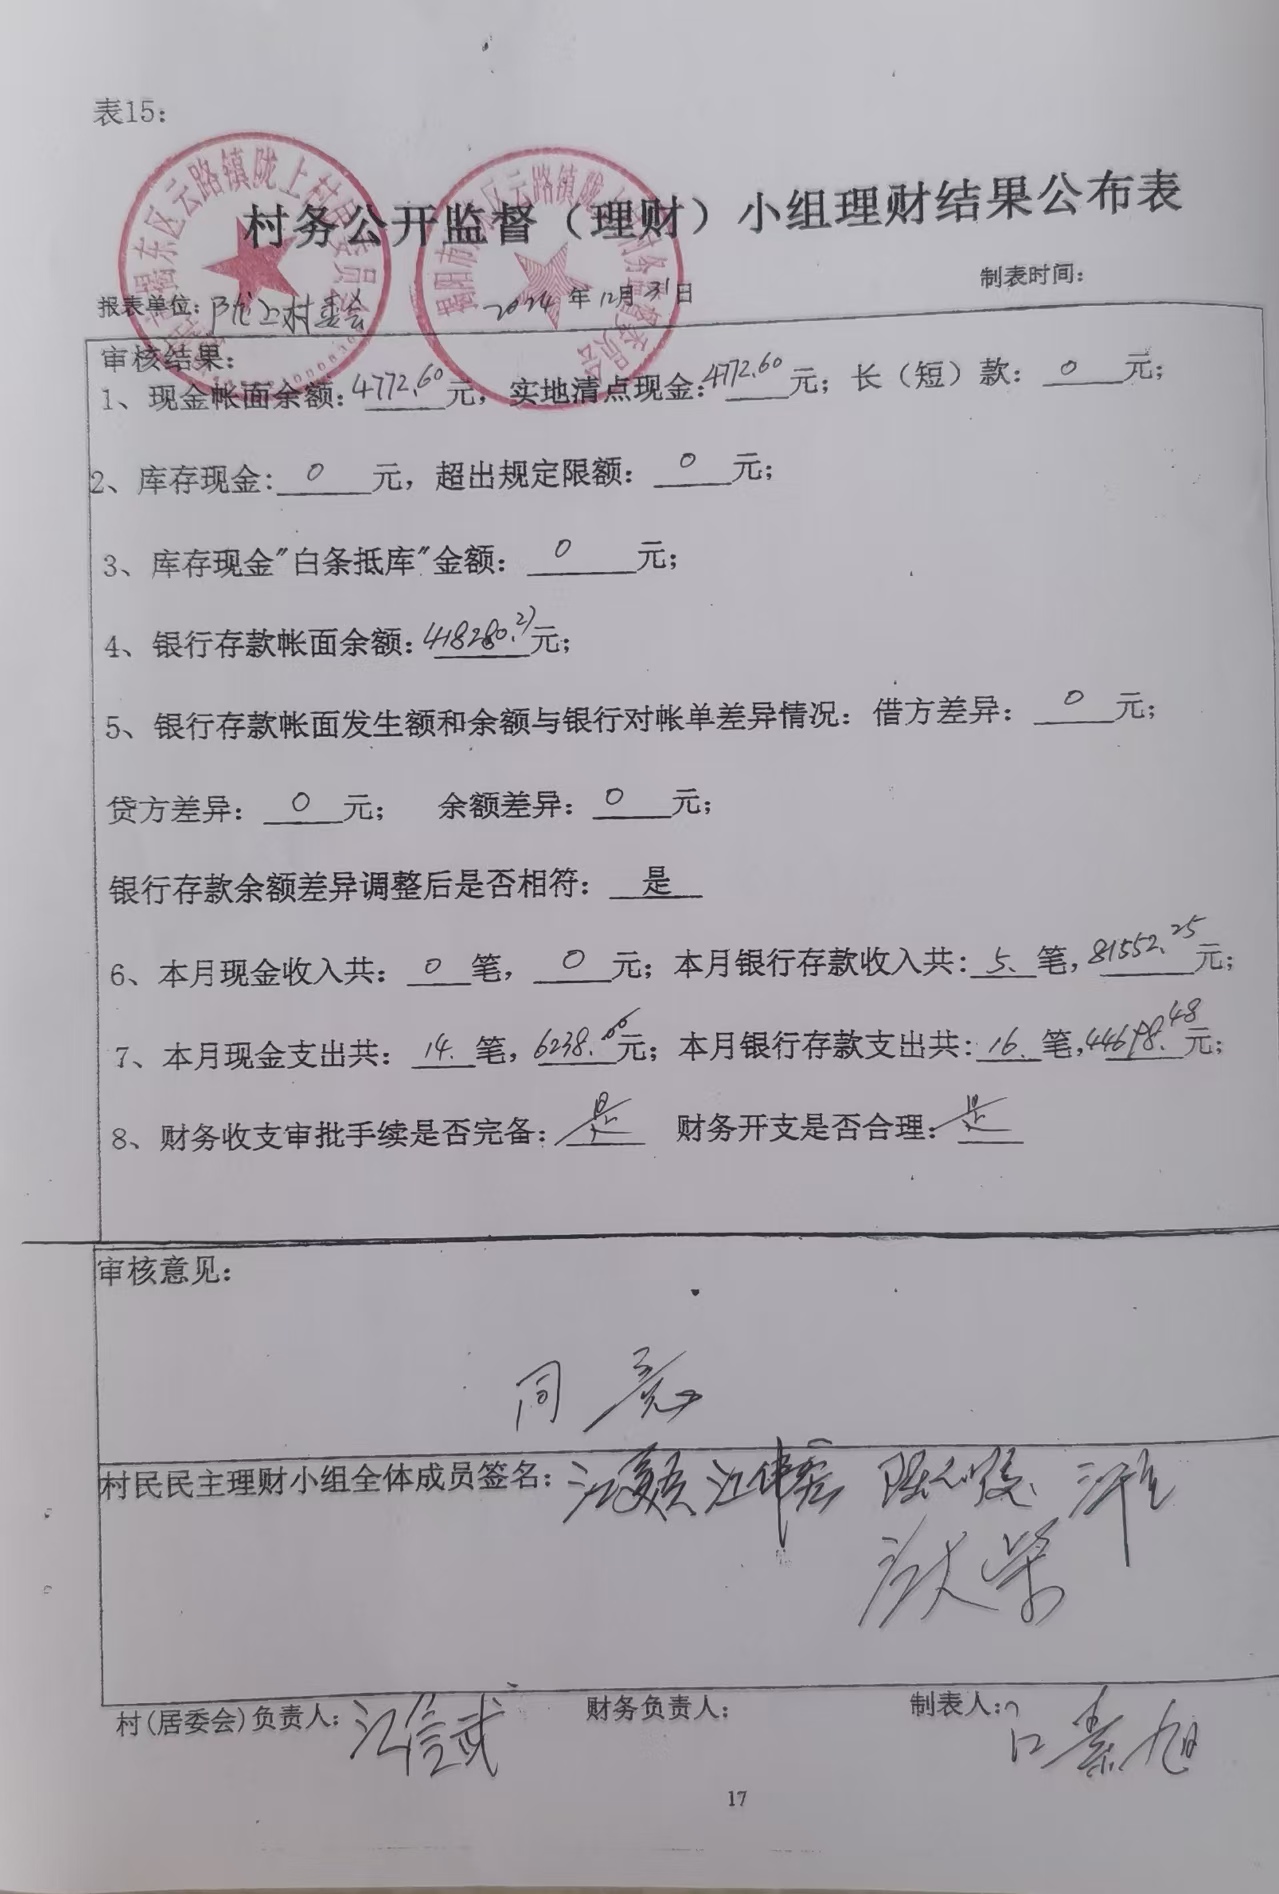 表15：
村务公开监督（理财）小组理财结果公布表
制表时间：
报表单位：陇上村委会 2024年12月31日
审核结果：
1、现金帐面余额：4772.60元，实地清点现金：4772.60元；长（短）款：0元；
2、库存现金：0元，超出规定限额：0元；
3、库存现金"白条抵库"金额：0元；
4、银行存款帐面余额：418280.27元；
5、银行存款帐面发生额和余额与银行对帐单差异情况：借方差异：0元；
贷方差异：0元； 余额差异：0元；
银行存款余额差异调整后是否相符：是
6、本月现金收入共：0笔，0元；本月银行存款收入共：5.笔，81552.25元；
7、本月现金支出共：14.笔，6238.00元；本月银行存款支出共：16.笔，44698.48元；
8、财务收支审批手续是否完备：是 财务开支是否合理：是
审核意见：
同意
村民民主理财小组全体成员签名：
村(居委会)负责人：江信武 财务负责人： 制表人：
17